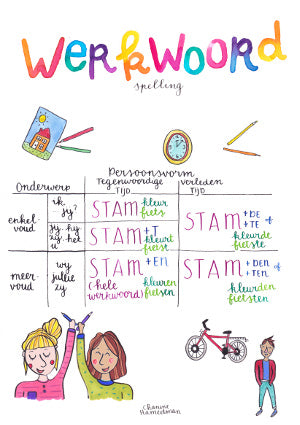 WERKWOORD
spelling
Persoonsvorm
Onderwerp
Tegenwoordige
TIJD
verleden
TIJD
enkel-
voud
ik
jij?
STAM
kleur
fiets
jij hij
zij het
u
STAM +T
kleurt
fietst
STAM +DE
+TE
kleurde
fietste
meer-
voud
wij
jullie
zij
STAM +EN
(hele
werkwoord)
kleuren
fietsen
STAM +DEN
+TEN
kleurden
fietsten